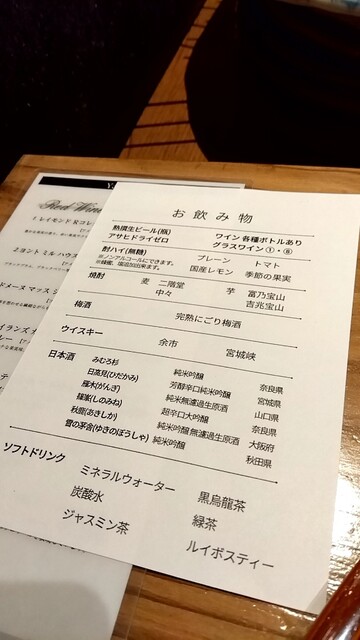 Red Wine
1 レイモンド Rコレ
2 ヨント ミル ハウス
ドメーヌ マックス
イランズ
お飲み物
熟撰生ビール(瓶) ワイン 各種ボトルあり
アサヒドライゼロ グラスワイン ①・⑧
酎ハイ(無糖) プレーン トマト
※ノンアルコールにできます。
国産レモン 季節の果実
焼酎 麦 二階堂 芋 富乃宝山
中々 吉兆宝山
梅酒 完熟にごり梅酒
ウイスキー 余市 宮城峡
日本酒 みむろ杉 純米吟醸 奈良県
日高見(ひだかみ) 芳醇辛口純米吟醸 宮城県
雁木(がんぎ) 純米無濾過生原酒 山口県
篠峯(しのみね) 超辛口大吟醸 奈良県
秋鹿(あきしか) 純米吟醸無濾過生原酒 大阪府
雪の茅舎(ゆきのぼうしゃ) 純米吟醸 秋田県
ソフトドリンク
ミネラルウォーター 黒烏龍茶
炭酸水 緑茶
ジャスミン茶 ルイボスティー